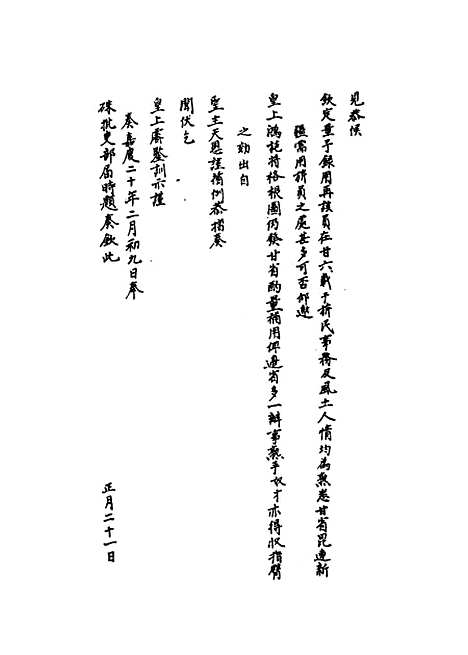 見恭候
欽定量予錄用再該員在甘六載于旂民事務及風土人情均為熟悉甘省毘連新
疆需用旂員之處甚多可否仰邀
皇上鴻慈將格根圖仍發甘省酌量補用俾邊省多一辦事熟手奴才亦得收指臂
之効出自
聖主天恩謹循例恭摺奏
聞伏乞
皇上睿鑒訓示謹
奏嘉慶二十年二月初九日奉
硃批吏部屆時題奏欽此
正月二十一日